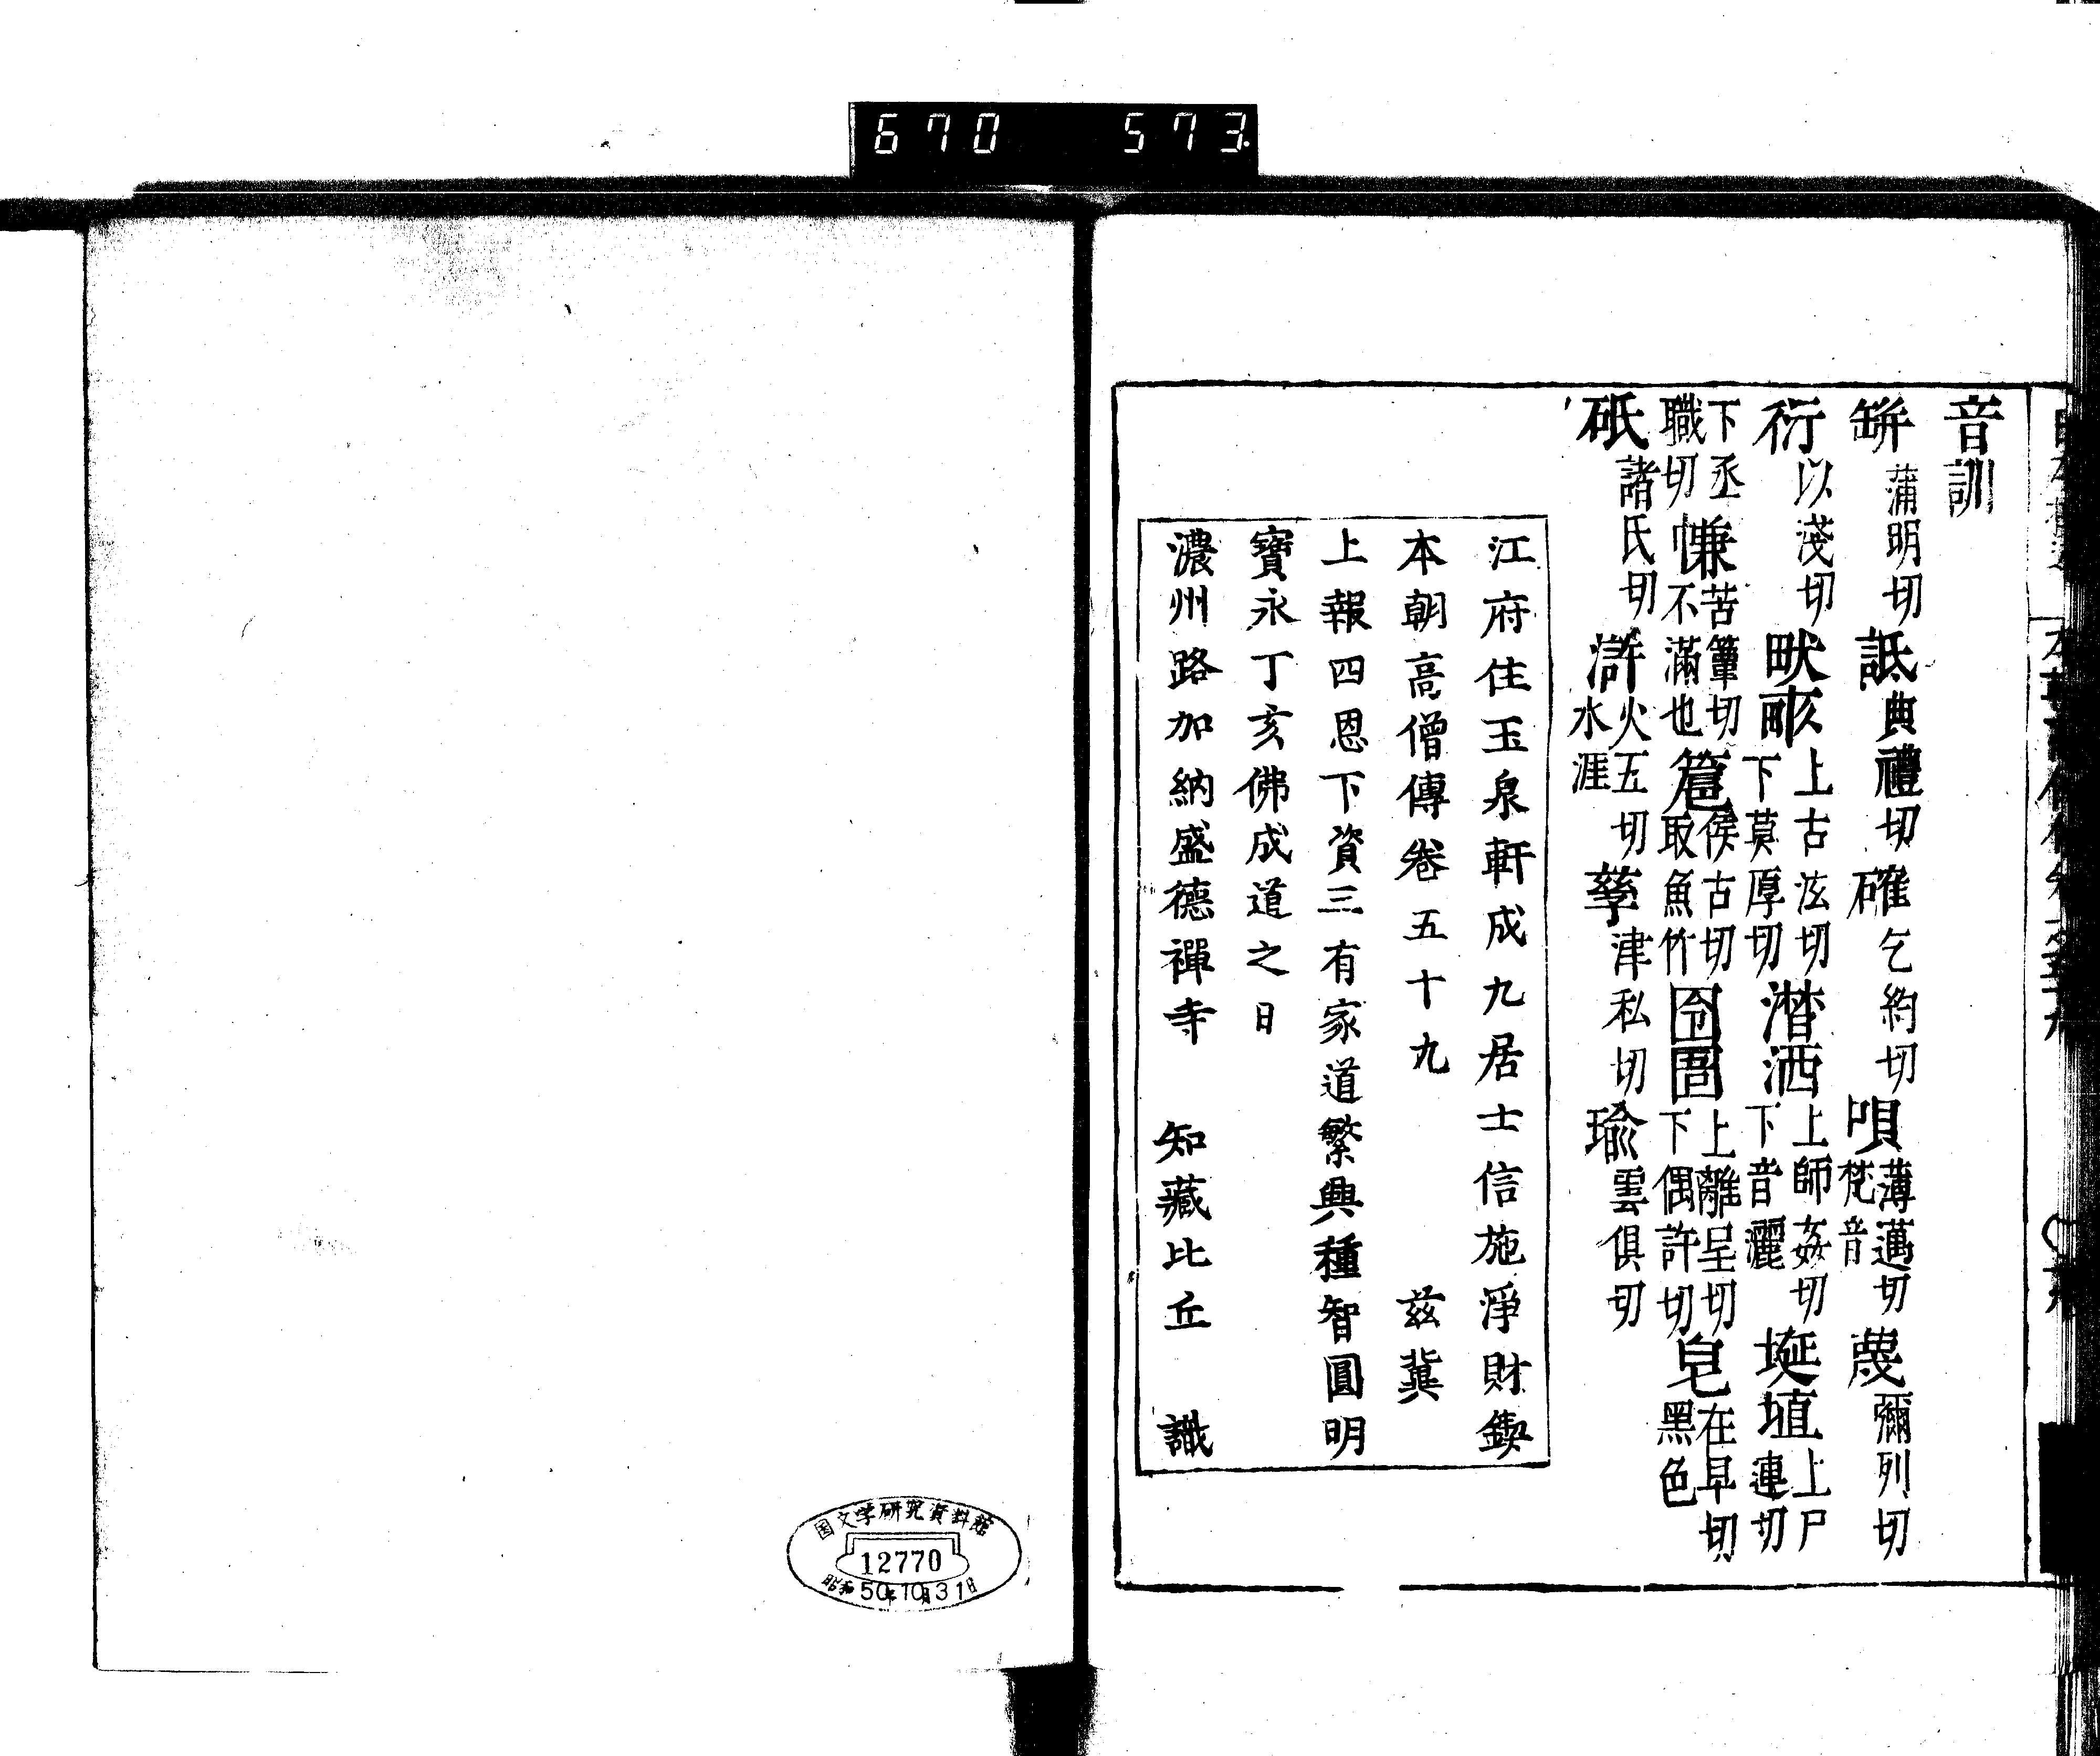 670 573
音訓
缾 蒲明切 詆 典禮切 確 乞約切 唄 薄邁切梵音 蔑 彌列切
衍 以淺切 畎畝 上古泫切下莫厚切 潸洒 上師姦切下音灑 埏埴 上尸連切
下丞職切 慊 苦簟切不滿也 篧 侯古切取魚竹 囹圄 上離呈切下偶許切 皀 在早切黑色
砥 諸氏切 滸 火五切水涯 孳 津私切 瑜 雲俱切
江府住玉泉軒成九居士信施淨財鍥
本朝高僧傳卷五十九 茲冀
上報四恩下資三有家道繁興種智圓明
寶永丁亥佛成道之日
濃州路加納盛德禪寺 知藏比丘 識
国文学研究資料館
12770
昭和50年10月31日